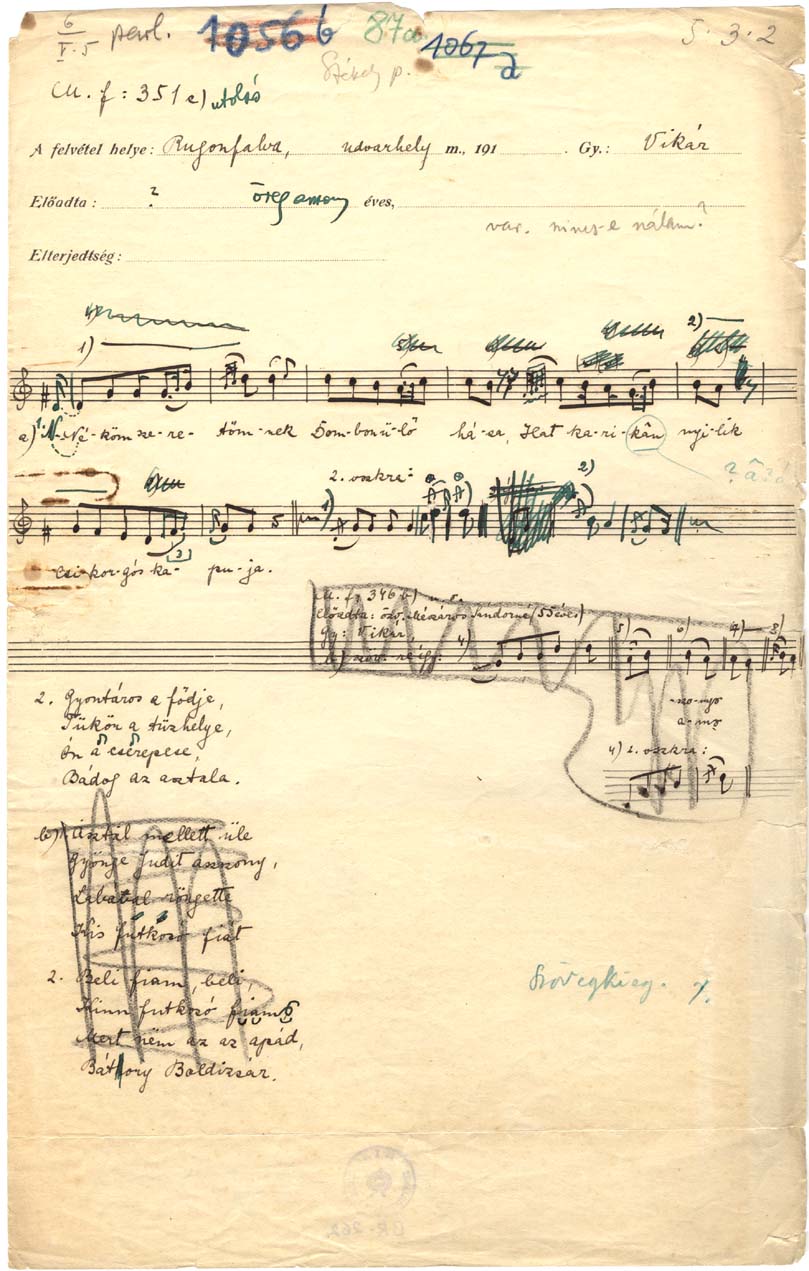 6
V. 5 parl. 10566 87a 1067 d 5. 3. 2
Székely p.
M. f: 351 a) utolsó
A felvétel helye: Rugonfalva, Udvarhely m., 191 . Gy.: Vikár
Előadta: ? öregasszony éves,
var. nincs-e nálam?
Elterjedtség:
1) 2)
a) 1. Né-köm sze-re- tőm-nek Dom-bon ü-lő há-za, Hat ka-ri-kán nyi-lik
? â? á
2. oszkra: 2)
csi-kor-gós ka- pu-ja.
M. f: 346 b) u. r.
Előadta: özv. Mészáros Sándorné (55 éves)
Gy: Vikár
4) 5) 6) 7) 8)
2. Gyontáros a födje,
Tükör a tüzhelye,
Ón a cserepese,
Bádog az asztala.
-szo-nyo
a-nyo
4) 2. oszkra:
b) Asztal mellett üle
Gyönge Judit asszony,
Lábával röngette
Kis futkosó fiát
2. Beli fiam, beli,
Kinn futkosó fiam
Mert nëm az az apád,
Báthory Boldizsár.
Szövegkieg.
BR-262.